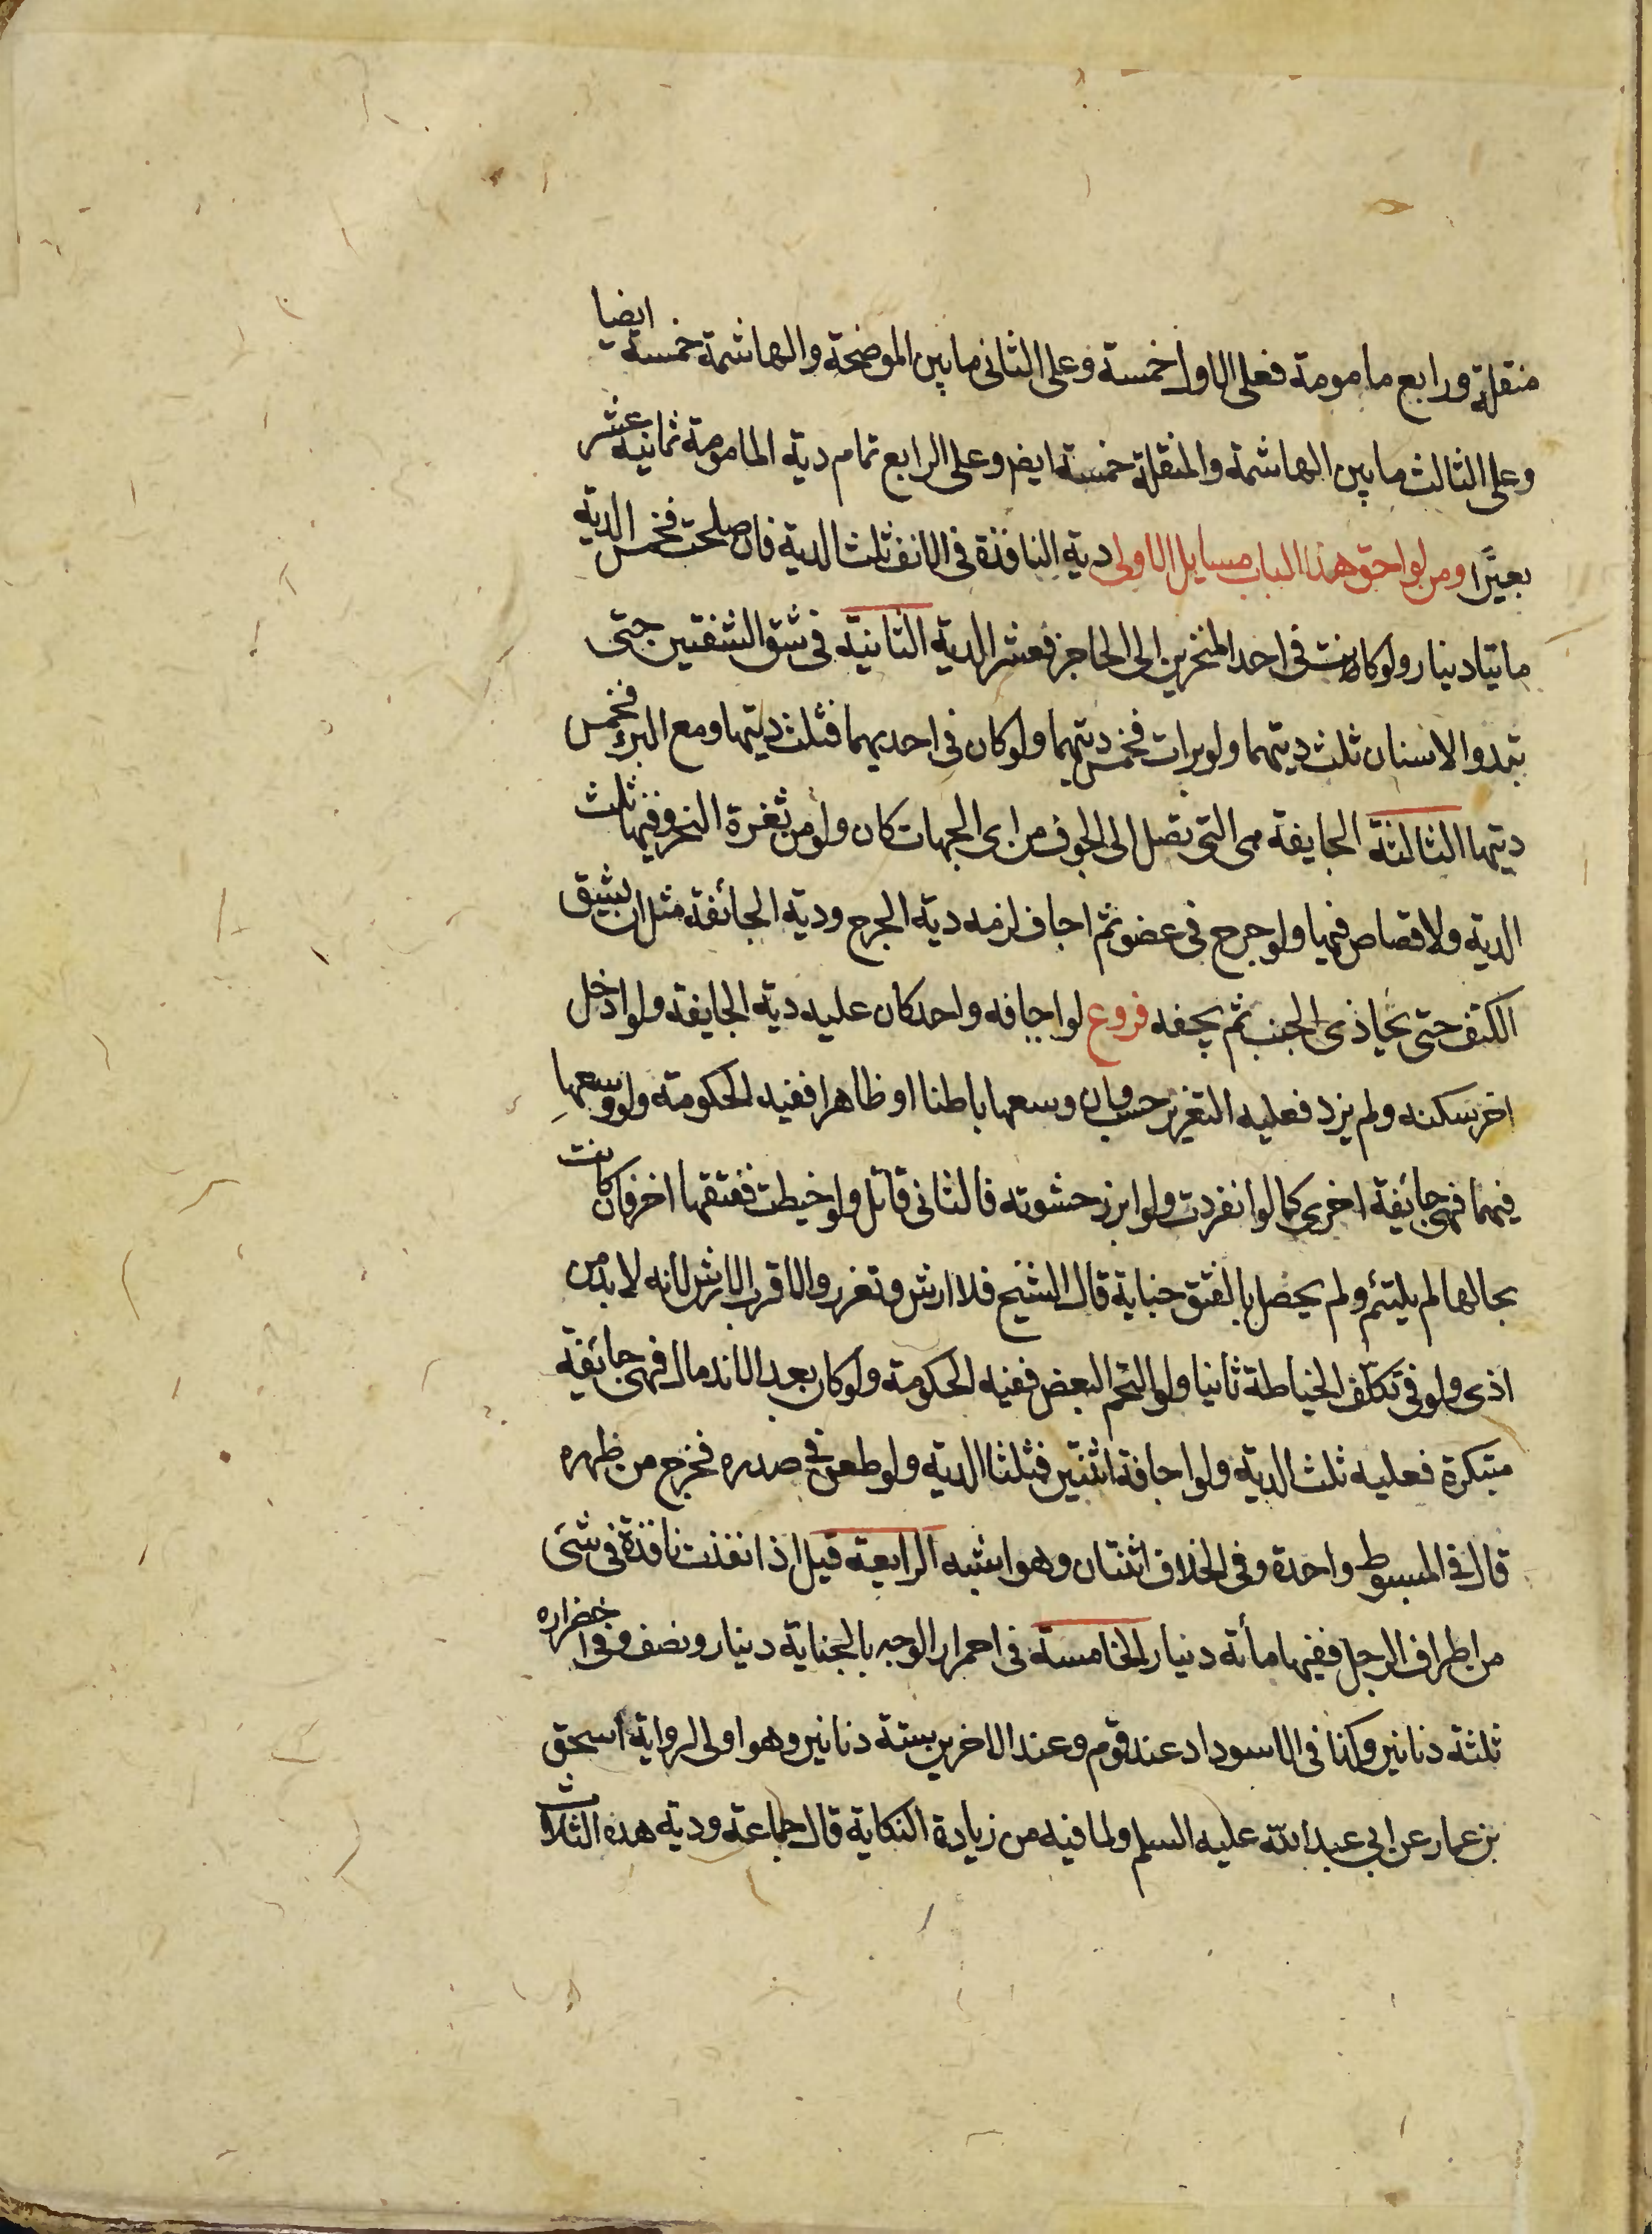 منقلة ورابع مامومة فعلى الاول خمسة وعلى الثانى مابين الموضحة والهاشمة خمسة ايضا
وعلى الثالث مابين الهاشمة والمنقلة خمسة ايض وعلى الرابع تمام دية المامومة ثمانية عشر
بعيرًا ومن لواحق هذا الباب مسايل الاولى دية النافذة فى الانف ثلث الدية فان صلحت فخمس الدية
مايتا دينار ولو كانت فى احد المنخرين الى الحاجز فعشر الدية الثانية فى شق الشفتين حتى
تبدوا الاسنان ثلث ديتهما ولو برات فخمس ديتهما ولو كان فى احديهما فثلث ديتها ومع البرء فخمس
ديتها الثالثة الجايفة هى التى تصل الى الجوف من اى الجهات كان ولو من ثغرة النحر وفيها ثلث
الدية ولا قصاص فيها ولو جرح فى عضو ثم اجاف لزمه دية الجرح ودية الجائفة مثل ان يشق
الكتف حتى يحاذى الجنب ثم يجفه فروع لو اجافه واحد كان عليه دية الجايفة ولو ادخل
اخر سكنه ولم يزد فعليه التعزير حسب وان وسعها باطنا او ظاهرا ففيه الحكومة ولو وسعها
فيهما فهى جائفة اخرى كما لو انفردت ولو ابرز حشوته فالثانى قاتل ولو خيطت ففتقها اخر فان كانت
بحالها لم يلتئم ولم يحصل بالفتق جناية قال الشيخ فلا ارش وتعزر والاقرب الارش لانه لا بد من
اذى ولو فى تكلّف الخياطة ثانيا ولو التحم البعض ففيه الحكومة ولو كان بعد الاندمال فهى جائفة
مبتكرة فعليه ثلث الدية ولو اجافة اثنتين فثلثا الدية ولو طعن فى صدره فخرج من ظهره
قال فى المبسوط واحدة وفى الخلاف اثنتان وهو اشبه الرابعة قيل اذا نفذت نافذة فى شئ
من اطراف الرجل ففيها مأئة دينار الخامسة فى احمرار الوجه بالجناية دينار ونصف وفى اخضراره
ثلثة دنانير وكذا فى الاسوداد عند قوم وعند الاخرين ستة دنانير وهو اولى لرواية اسحق
بن عمار عن ابى عبد الله عليه السلم ولما فيه من زيادة النكاية قال جماعة ودية هذه الثلاث